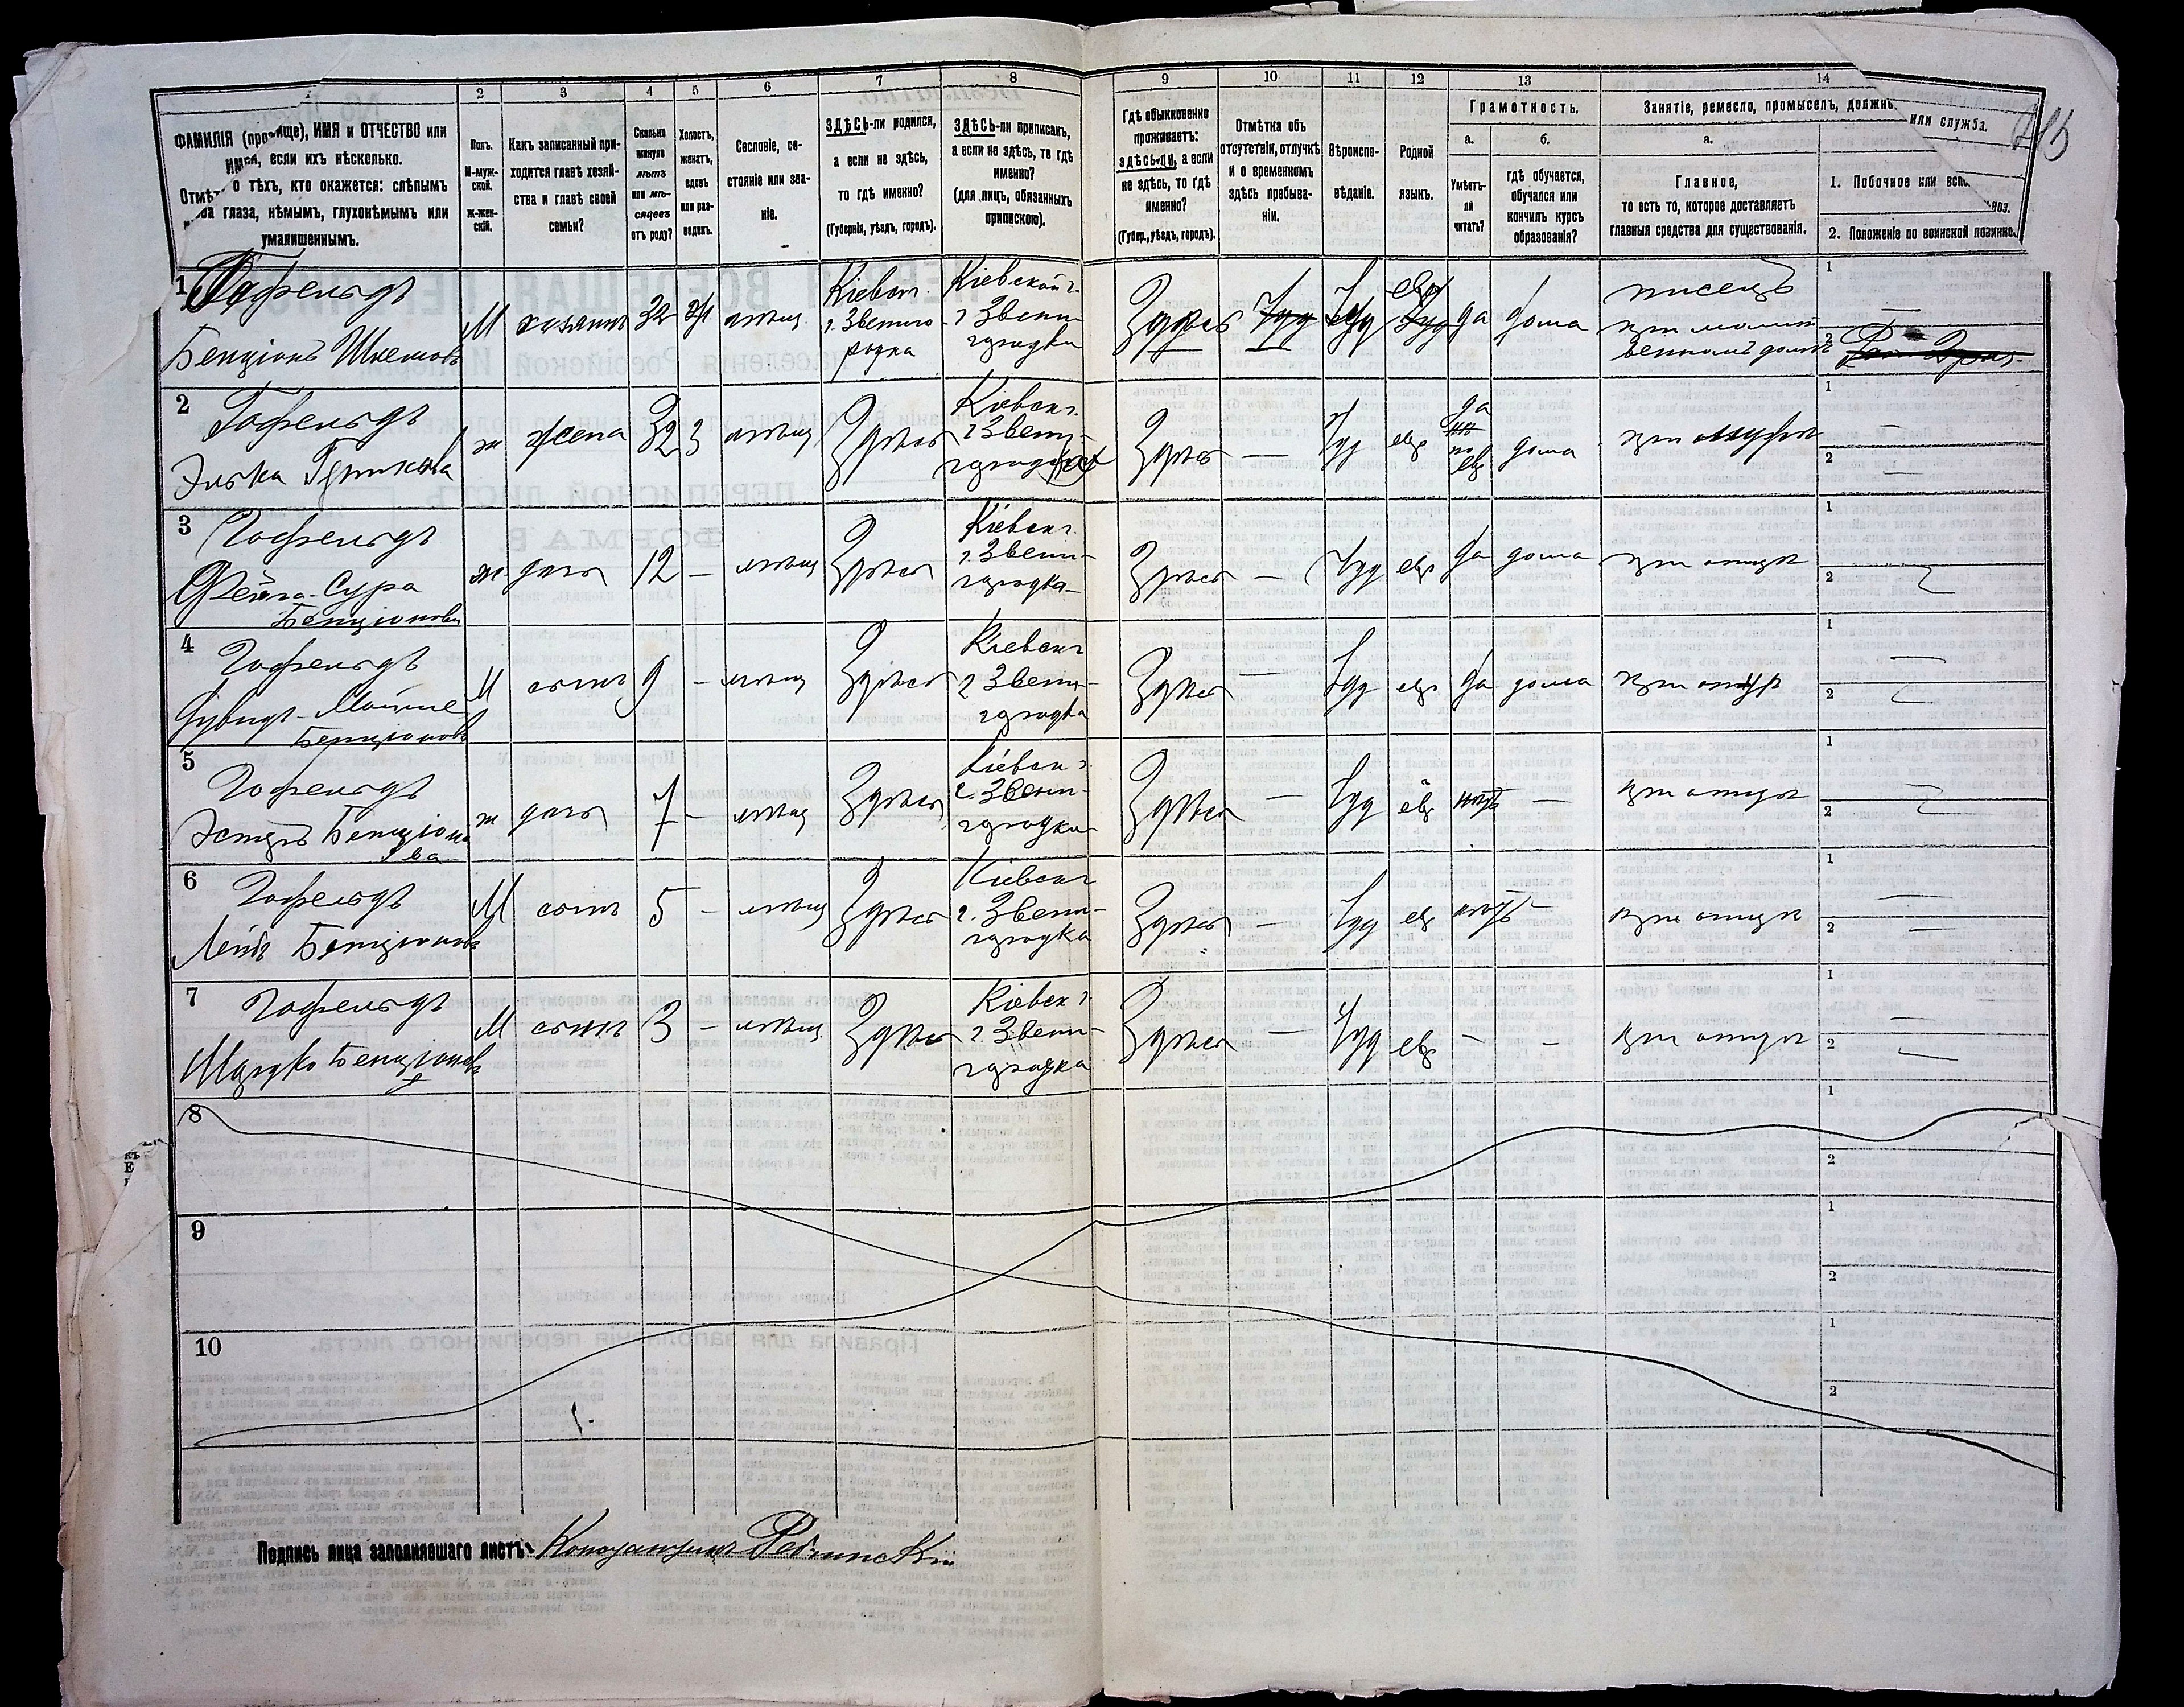 2 3 4 5 6 7 8 9 10 11 12 13 14
ФАМИЛІЯ (прозвище), ИМЯ и ОТЧЕСТВО или
имена, если ихъ нѣсколько.
Отмѣтка о тѣхъ, кто окажется: слѣпымъ
на оба глаза, нѣмымъ, глухонѣмымъ или
умалишеннымъ.
Полъ.
М-муж-
ской.
Ж-жен-
скій.
Какъ записанный при-
ходится главѣ хозяй-
ства и главѣ своей
семьи?
Сколько
минуло
лѣтъ
или мѣ-
сяцевъ
отъ роду?
Холостъ,
женатъ,
вдовъ
или раз-
веденъ.
Сословіе, со-
стояніе или зва-
ніе.
ЗДѢСЬ-ли родился,
а если не здѣсь,
то гдѣ именно?
(Губернія, уѣздъ, городъ).
ЗДѢСЬ-ли приписанъ,
а если не здѣсь, то гдѣ
именно?
(для лицъ, обязанныхъ
припискою).
Гдѣ обыкновенно
проживаетъ:
здѣсь-ли, а если
не здѣсь, то гдѣ
именно?
(Губер., уѣздъ, городъ).
Отмѣтка объ
отсутствіи, отлучкѣ
и о временномъ
здѣсь пребыва-
ніи.
Вѣроиспо-
вѣданіе.
Родной
языкъ.
Грамотность.
а.
Умѣетъ-
ли
читать?
б.
гдѣ обучается,
обучался или
кончилъ курсъ
образованія?
Занятіе, ремесло, промыселъ, должн
или служба.
а.
Главное,
то есть то, которое доставляетъ
главныя средства для существованія.
1. Побочное или вспо
2. Положеніе по воинской повинно
1 Гофельдъ
Бенціонъ
М хозяинъ 32 ж мѣщ
Кіевск. г. Звениго-
родка
Кіевской г.
г Звени-
городка
Здѣсь Іуд Іуд евр да дома
писецъ
при молит
венномъ домѣ
1 —
2
2 Гофельдъ
Элька
ж жена 32 з мѣщ Здѣсь
Кіевск г.
г Звени-
городка
Здѣсь — Іуд евр да
по
евр дома при мужѣ
1 —
2 —
3 Гофельдъ
Фейга-Сура
Бенціонов
ж. дочь 12 — мѣщ Здѣсь
Кіевск г.
г. Звени-
городка
Здѣсь — Іуд евр да дома при отцѣ
1
2
4 Гофельдъ
Бенціонов
М сынъ 9 — мѣщ Здѣсь
Кіевск г
г Звени-
городка
Здѣсь — Іуд евр да дома при отцѣ
1 —
2
5 Гофельдъ
Эстеръ Бенціоно
ва
ж дочь 7 — мѣщ Здѣсь
Кіевск г.
г. Звени-
городка
Здѣсь — Іуд евр нѣтъ — при отцѣ
1
2
6 Гофельдъ
Лейбъ Бенціоновъ
М сынъ 5 — мѣщ Здѣсь
Кіевск г
г. Звени-
городка
Здѣсь — Іуд евр нѣтъ — при отцѣ
1 —
2 —
7 Гофельдъ
Мордко Бенціоновъ
М сынъ 3 — мѣщ Здѣсь
Кіевск г
г. Звени-
городка
Здѣсь — Іуд евр — — при отцѣ
1 —
2
8
1
2
9
1
2
10
1
2
Подпись лица заполнявшаго листъ: Константинъ